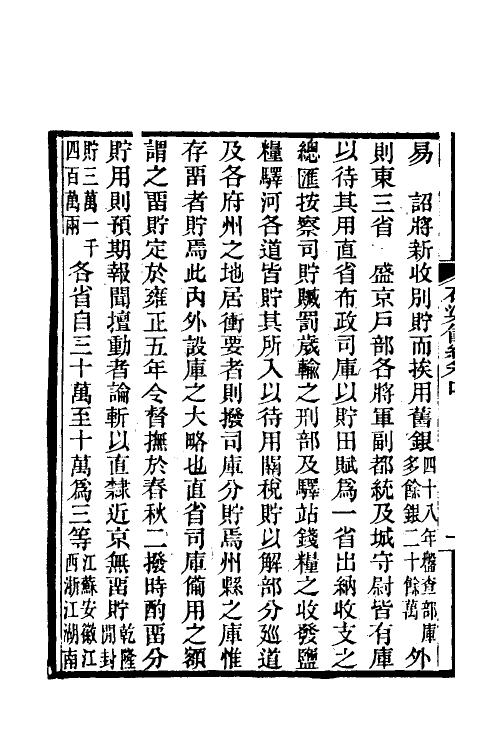 易　詔將新收別貯而挨用舊銀四十八年盤查部庫多餘銀二十餘萬外
則東三省　盛京戶部各將軍副都統及城守尉皆有庫
以待其用直省布政司庫以貯田賦爲一省出納收支之
總匯按察司貯贓罰歲輸之刑部及驛站錢糧之收發鹽
糧驛河各道皆貯其所入以待用關稅貯以解部分廵道
及各府州之地居衝要者則撥司庫分貯焉州縣之庫惟
存畱者貯焉此內外設庫之大略也直省司庫備用之額
謂之畱貯定於雍正五年令督撫於春秋二撥時酌畱分
貯用則預期報聞壇動者論斬以直隸近京無畱貯乾隆閒封
貯三萬一千四百萬兩各省自三十萬至十萬爲三等江蘇安徽江西浙江湖南